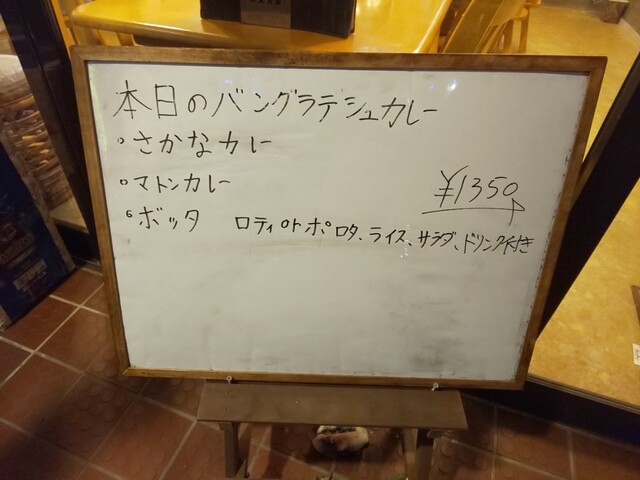 本日のバングラデシュカレー
・さかなカレー
・マトンカレー
¥1350
・ボッタ ロティorポロタ、ライス、サラダ、ドリンク付き